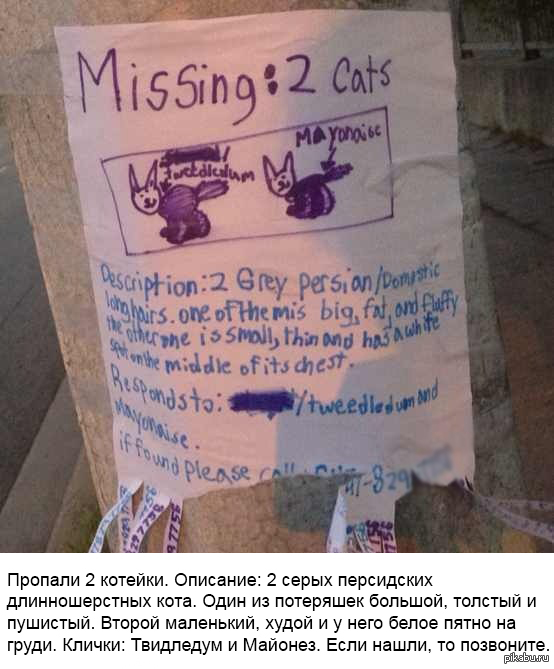 Missing: 2 Cats
Mayonaise
/
Tweedledum
Description: 2 Grey Persian/Domestic
long hairs. one of them is big, fat, and fluffy
the other one is small, thin and has a white
spot on the middle of its chest.
Responds to: /tweedledum and
Mayonaise.
if found please call
Пропали 2 котейки. Описание: 2 серых персидских
длинношерстных кота. Один из потеряшек большой, толстый и
пушистый. Второй маленький, худой и у него белое пятно на
груди. Клички: Твидледум и Майонез. Если нашли, то позвоните.
pikabu.ru